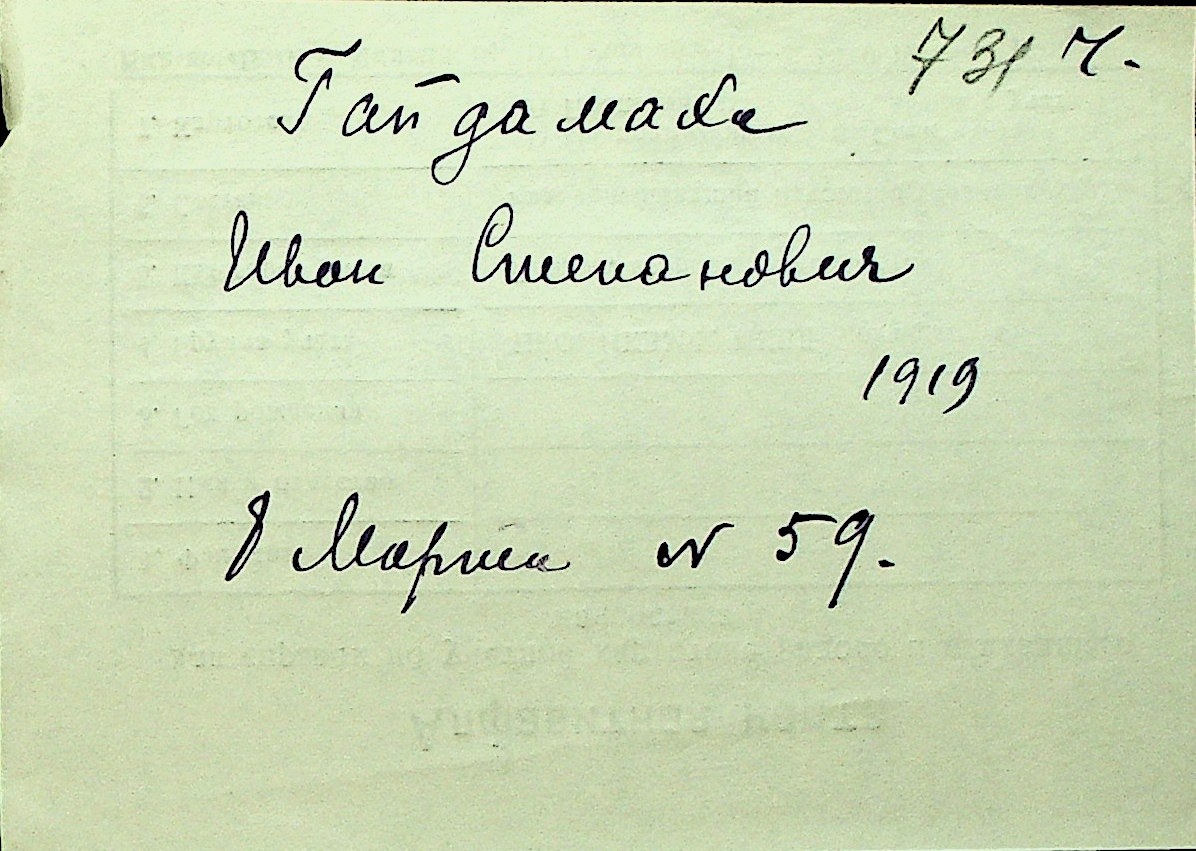 731 ч.
Гайдамака
Иван Степанович
1919
8 Марта № 59.